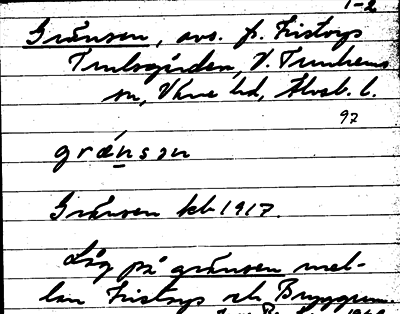 1-2
Gränsen, avs. fr. Fristorps
Trulsgården, V. Tunhems
sn, Väne hd, Älvsb. l.
97
grä́nsən
Gränsen kb 1917.
Låg på gränsen mel-
lan Fristorps och Bryggum.